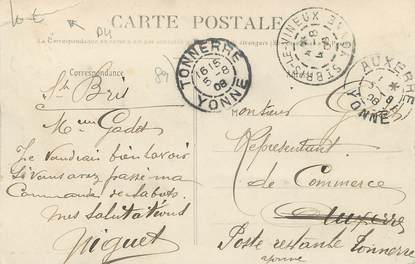 CARTE POSTALE
La Correspondance
Correspondance
TONNERRE
16 15
5 -8
08
YONNE
ST-BRIS-LE-VINEUX
AUXERRE
YONNE
St Bris
Mr Gadet
Je Voudrai bien savoir
Si vous avez passé ma
Commande de sabots
mes salutations
Piguet
Monsieur
Representant
de Commerce
Auxerre
Poste restante Tonnerre
yonne